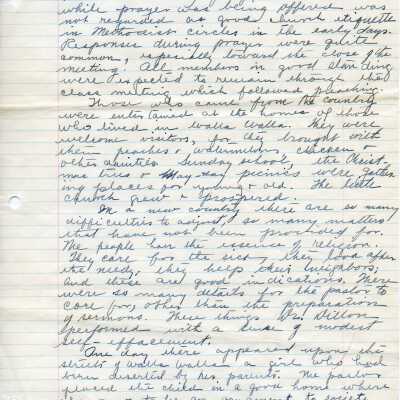 while prayer was being offered was
not regarded as good church etiquette
in Methodist circles in the early days.
Responses during prayer were quite
common, especially toward the close of the
meeting. All members in good standing
were expected to remain through the
class meeting which followed preaching.
Those who came from the country
were entertained at the homes of those
who lived in Walla Walla. They were
welcome visitors, for they brought with
them peaches, watermelons, chicken &
other dainties. Sunday school, the Christ-
mas tree & May-day picnics were gather-
ing places for young & old. The little
church grew & prospered.
In a new country there are so many
difficulties to adjust, so many matters
that have not been provided for.
The people have the essence of religion.
They care for the sick, they look after
the needy, they help their neighbors,
And these are good indications. There
were so many details for the pastor to
care for, other than the preparation
of sermons. These things Dr. Dillon
performed with a sense of modest
self-effacement.
One day there appeared upon the
streets of Walla Walla a girl who had
been deserted by her parents. The pastor
placed the child in a good home where
to society